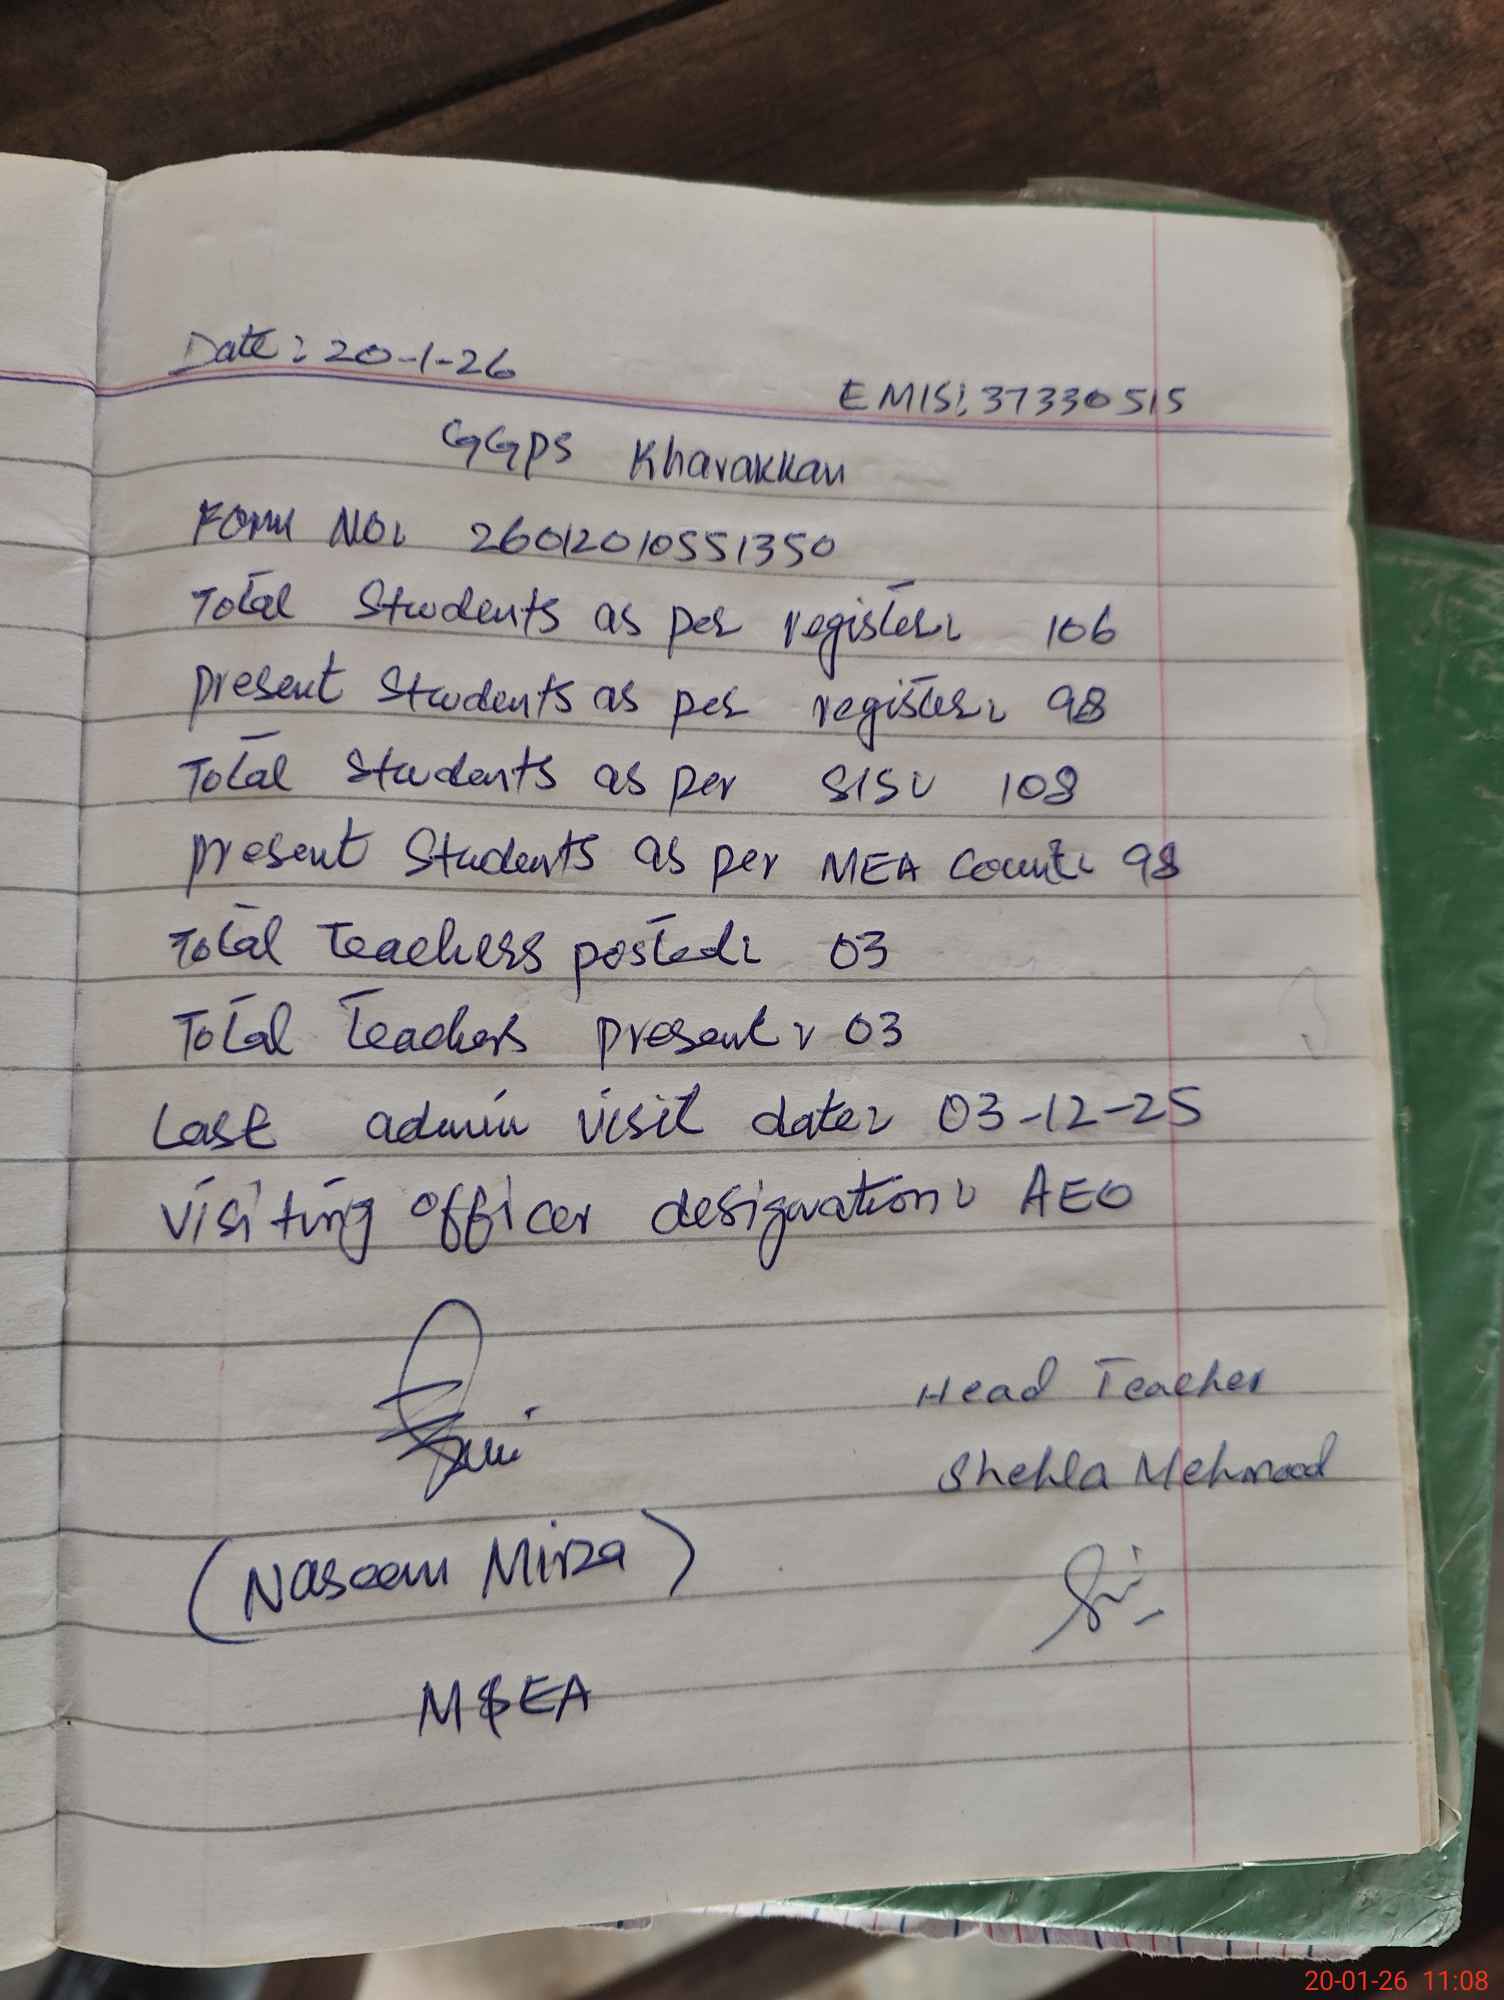 Date: 20-1-26
EMIS: 37330515
GGPS Kharakkan
Form No: 26012010551350
Total Students as per register: 106
present Students as per register: 98
Total Students as per SIS: 108
present Students as per MEA Count: 98
Total Teachers posted: 03
Total Teachers present: 03
Last admin visit date: 03-12-25
visiting officer designation: AEO
Head Teacher
Shehla Mehmood
(Naseem Mirza)
M&EA
20-01-26 11:08